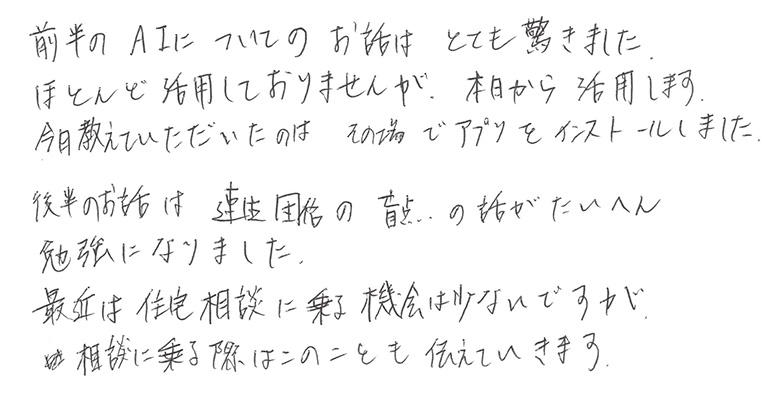 前半の AIに ついての お話は とても 驚きました.
ほとんど 活用しておりませんが. 本日から 活用します.
今日教えていただいたのは その場 でアプリを インストールしました.
後半のお話は 連生団信の 盲点.. の話がたいへん
勉強になりました.
最近は 住宅相談に乗る機会は少ないですが.
相談に乗る際はこのことも 伝えていきます.